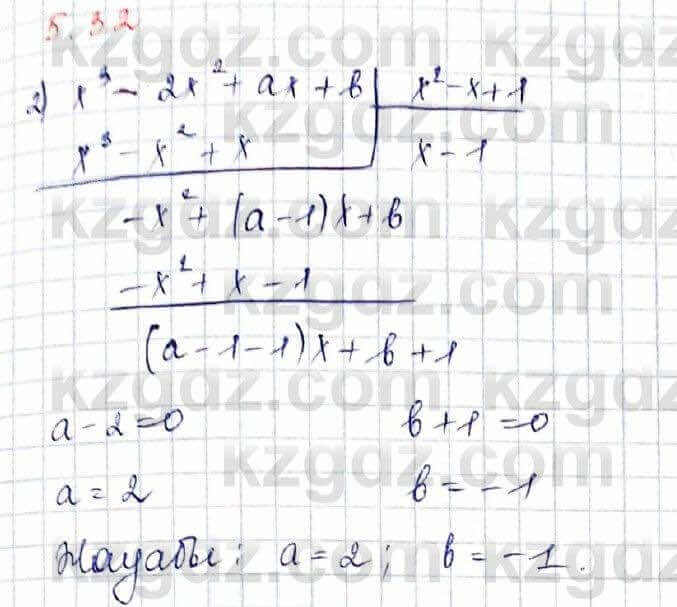 5.32
2) x³ - 2x² + ax + b | x² - x + 1
x³ - x² + x | x - 1
-x² + (a-1)x + b
-x² + x - 1
(a-1-1)x + b + 1
a - 2 = 0 b + 1 = 0
a = 2 b = -1
Жауабы: a = 2; b = -1.
kzgdz.com